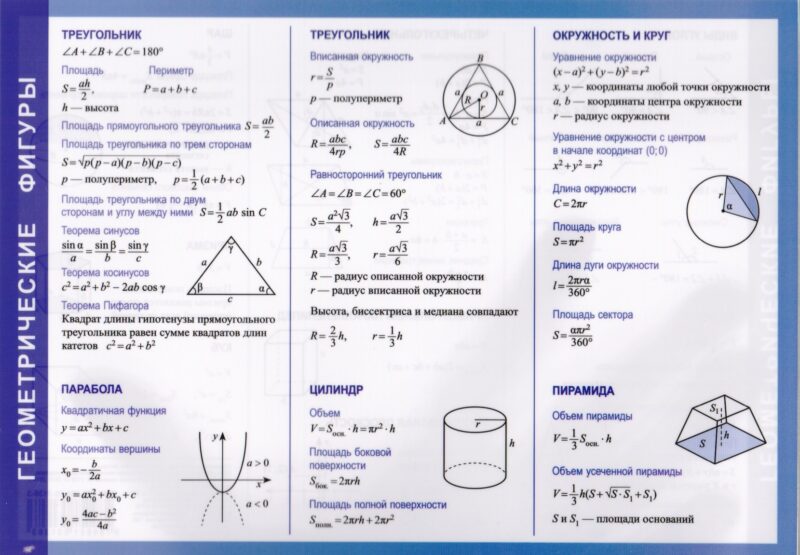 ГЕОМЕТРИЧЕСКИЕ ФИГУРЫ
ТРЕУГОЛЬНИК
∠A+∠B+∠C=180°
Площадь Периметр
S=ah/2, P=a+b+c
h — высота
Площадь прямоугольного треугольника S=ab/2
Площадь треугольника по трем сторонам
S=√p(p−a)(p−b)(p−c)
p — полупериметр, p=1/2(a+b+c)
Площадь треугольника по двум
сторонам и углу между ними S=1/2 ab sin C
Теорема синусов
sin α/a = sin β/b = sin γ/c
Теорема косинусов
c²=a²+b²−2ab cos γ
Теорема Пифагора
Квадрат длины гипотенузы прямоугольного
треугольника равен сумме квадратов длин
катетов c²=a²+b²
γ
a b
β α
c
ПАРАБОЛА
Квадратичная функция
y=ax²+bx+c
Координаты вершины
x₀=−b/2a
y₀=ax₀²+bx₀+c
y₀=4ac−b²/4a
y
a>0
x
a<0
ТРЕУГОЛЬНИК
Вписанная окружность
r=S/p
p — полупериметр
Описанная окружность
R=abc/4rp, S=abc/4R
B
a a
R O
r
A a C
Равносторонний треугольник
∠A=∠B=∠C=60°
S=a²√3/4, h=a√3/2
R=a√3/3, r=a√3/6
R — радиус описанной окружности
r — радиус вписанной окружности
Высота, биссектриса и медиана совпадают
R=2/3h, r=1/3h
ЦИЛИНДР
Объем
V=Sосн. · h=πr² · h
Площадь боковой
поверхности
Sбок.=2πrh
Площадь полной поверхности
Sполн.=2πrh+2πr²
r
h
ОКРУЖНОСТЬ И КРУГ
Уравнение окружности
(x−a)²+(y−b)²=r²
x, y — координаты любой точки окружности
a, b — координаты центра окружности
r — радиус окружности
Уравнение окружности с центром
в начале координат (0; 0)
x²+y²=r²
Длина окружности
C=2πr
Площадь круга
S=πr²
Длина дуги окружности
l=2πrα/360°
Площадь сектора
S=απr²/360°
r l
α
ПИРАМИДА
Объем пирамиды
V=1/3Sосн. · h
Объем усеченной пирамиды
V=1/3h(S+√S·S₁+S₁)
S и S₁ — площади оснований
S₁
h
S